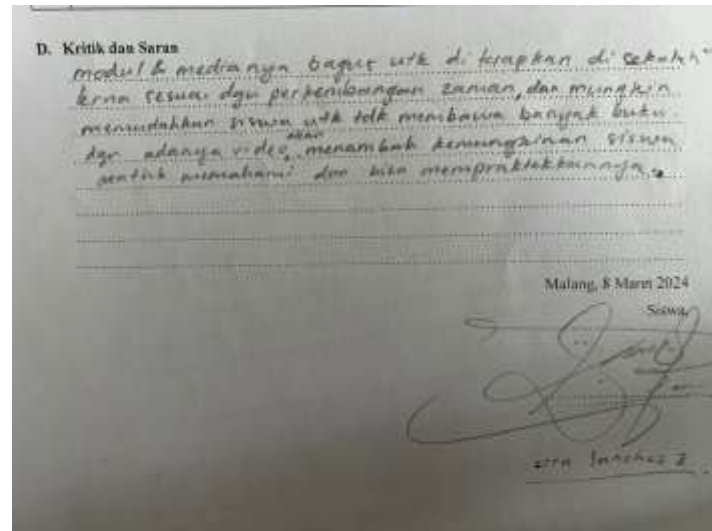 D. Kritik dan Saran
modul & medianya bagus utk di terapkan di sekolah"
krna sesuai dgn perkembangan zaman, dan mungkin
memudahkan siswa utk tdk membawa banyak buku.
dgn adanya video, akan menambah kemungkinan siswa
untuk memahami dan bisa mempraktekkannya.
Malang, 8 Maret 2024
Siswa,